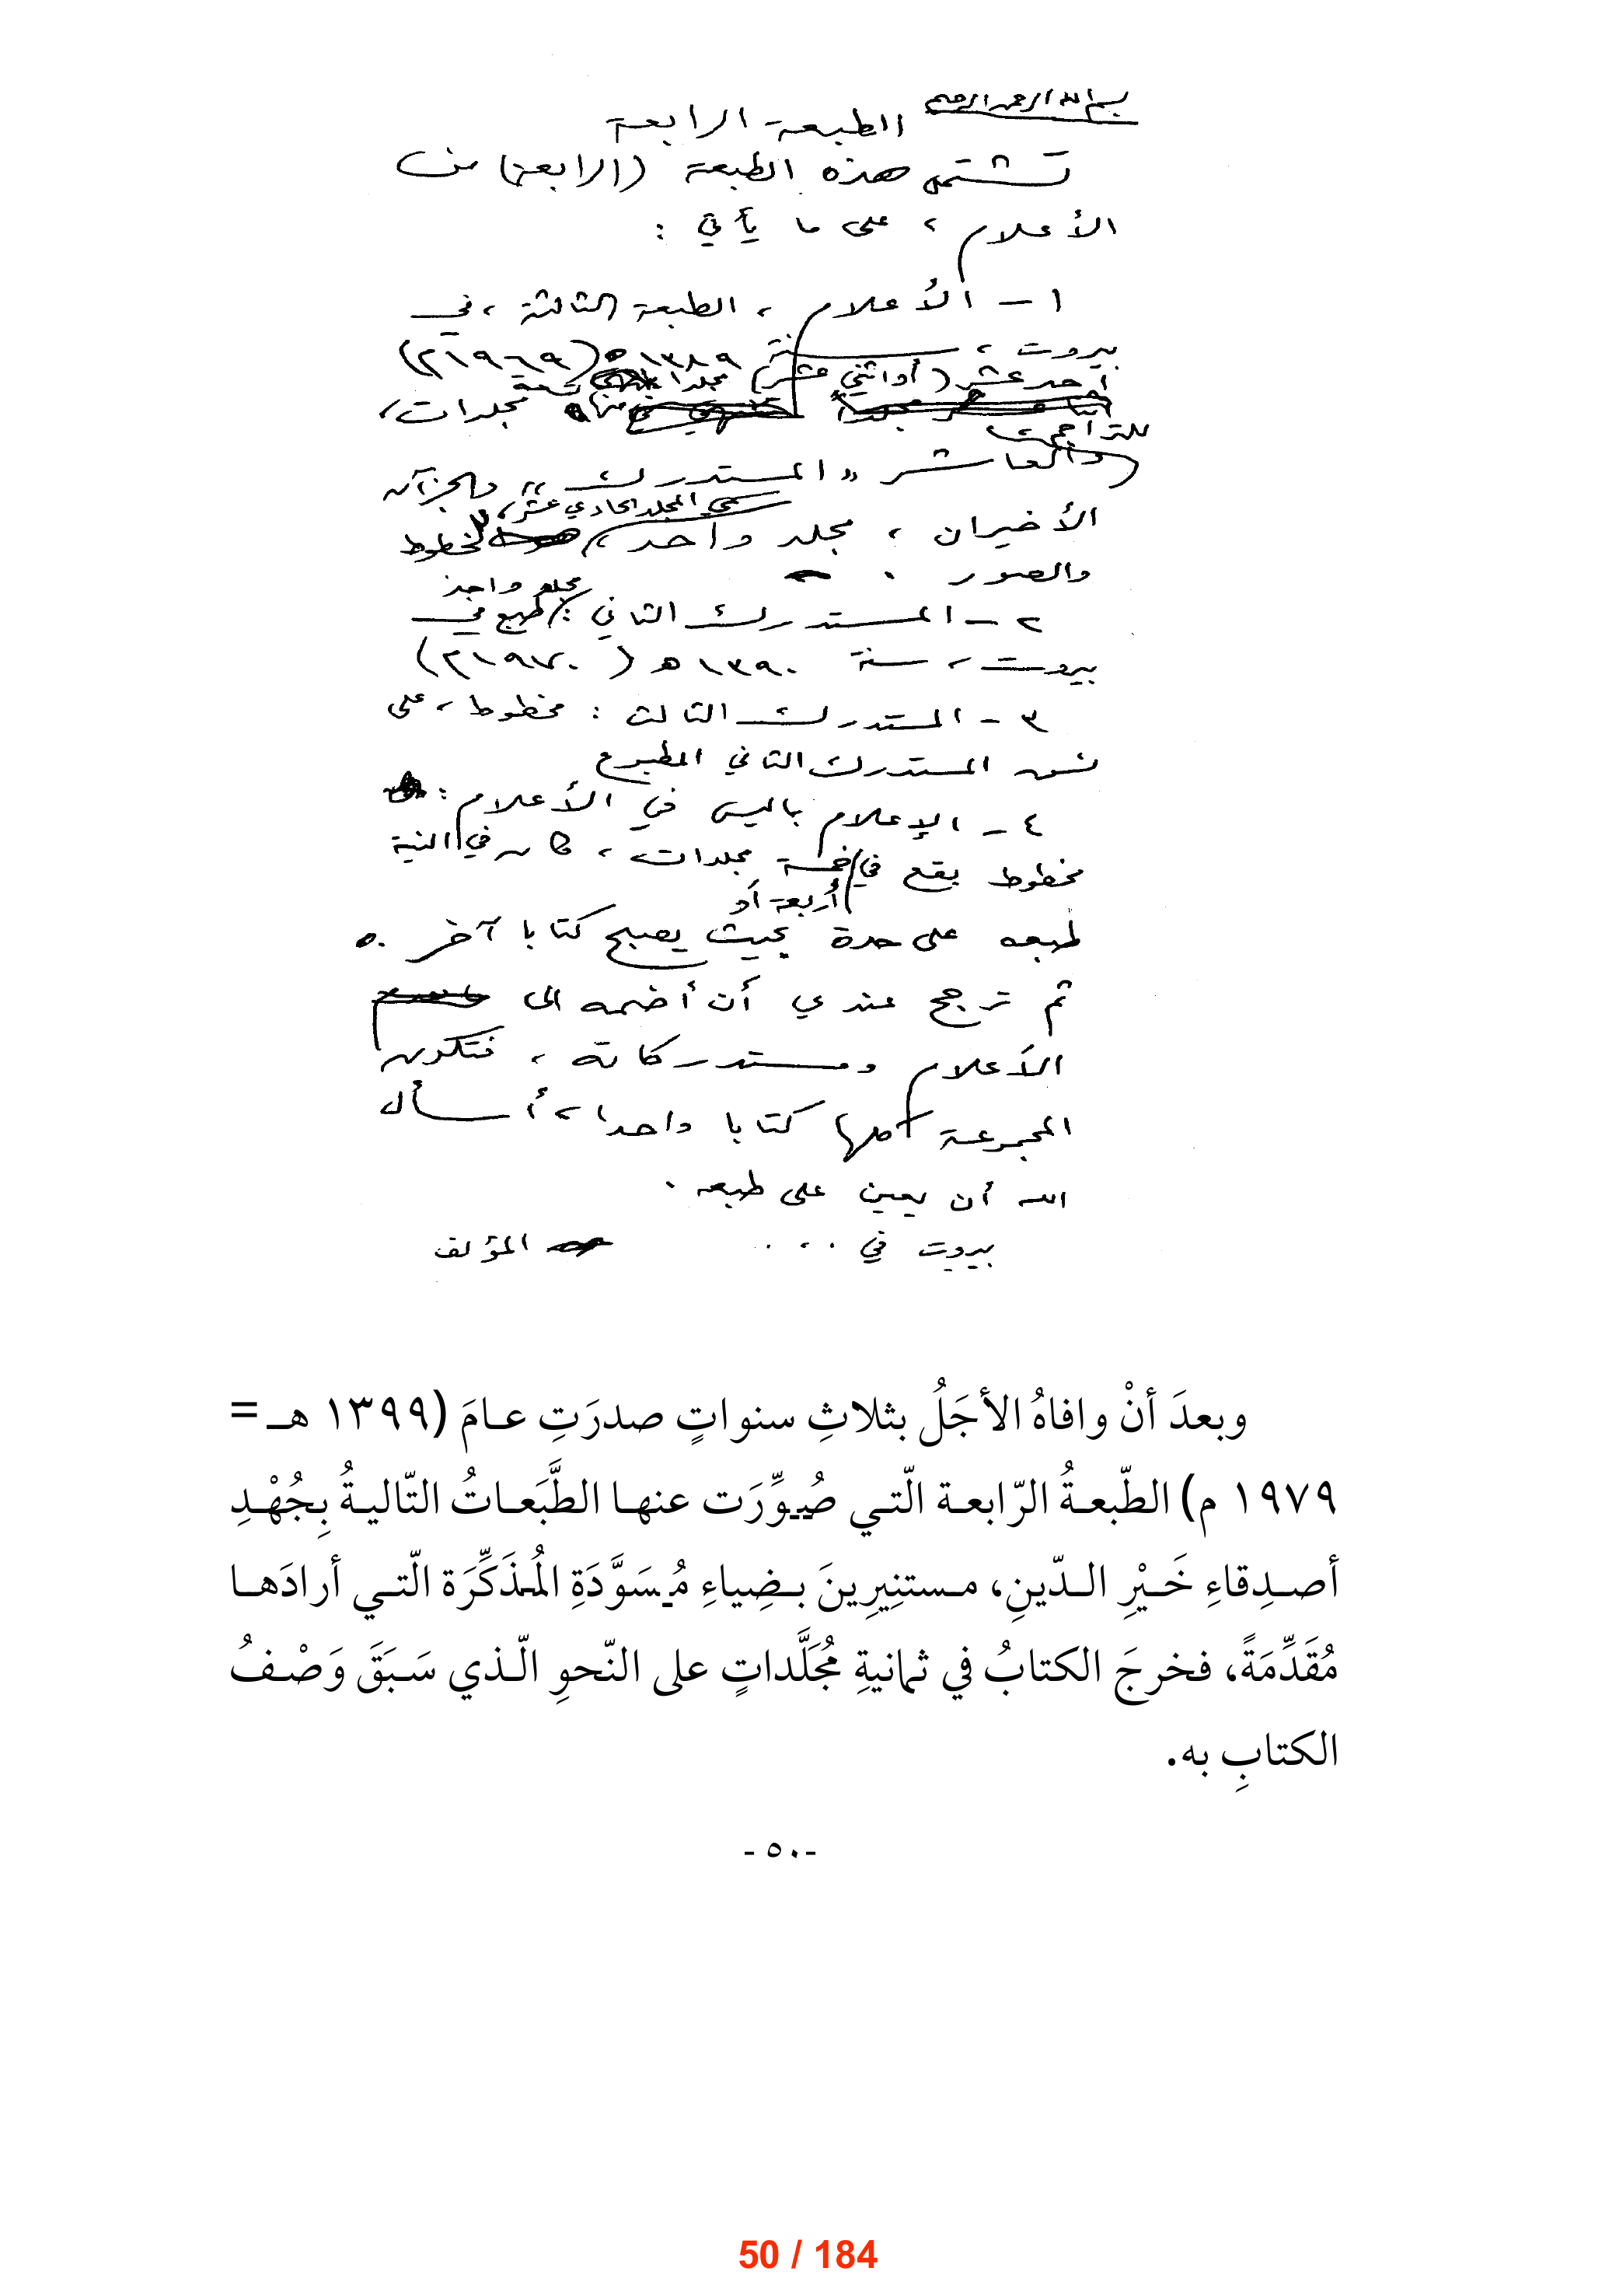 بسم الله الرحمن الرحيم
الطبعة الرابعة
تشتمل هذه الطبعة (الرابعة) من
الأعلام، على ما يأتي:
١ - الأعلام، الطبعة الثالثة، في
بيروت، سنة ١٣٨٩ هـ (١٩٦٩ م)
أحد عشر (أو اثني عشر) مجلدا
منها تسعة مجلدات،
للتراجم
والعاشر «المستدرك» والجزآن
سمي المجلد الحادي عشر،
الأخيران، مجلد واحد، للخطوط
والصور.
مجلد واحد
٢ - المستدرك الثاني: طبع في
بيروت، سنة ١٣٩٠ هـ (١٩٧٠ م)
٣ - المستدرك الثالث: مخطوط، على
نسق المستدرك الثاني المطبوع
٤ - الإعلام بما ليس في الأعلام:
مخطوط يقع في خمسة مجلدات، كان في النية
أربعة أو
طبعه على حدة بحيث يصبح كتابا آخر.
ثم ترجح عندي أن أضمه الى
الأعلام ومستدركاته، فتكون
المجموعة كلها كتابا واحدا، أسأل
الله أن يعين على طبعه.
بيروت في ... المؤلف
وبعدَ أنْ وافاهُ الأجَلُ بثلاثِ سنواتٍ صدرَتِ عـامَ (١٣٩٩ هـ =
١٩٧٩ م) الطّبعـةُ الرّابعـة الّتـي صُـوِّرَت عنهـا الطَّبَعـاتُ التّاليـةُ بِجُهْـدِ
أصـدِقاءِ خَـيْرِ الـدّينِ، مـستنِيرِينَ بـضِياءِ مُـسَوَّدَةِ المُـذَكِّرَة الّتـي أرادَهـا
مُقَدِّمَةً، فخرجَ الكتابُ في ثمانيةِ مُجَلَّداتٍ على النّحوِ الّـذي سَـبَقَ وَصْـفُ
الكتابِ به.
- ٥٠ -
50 / 184